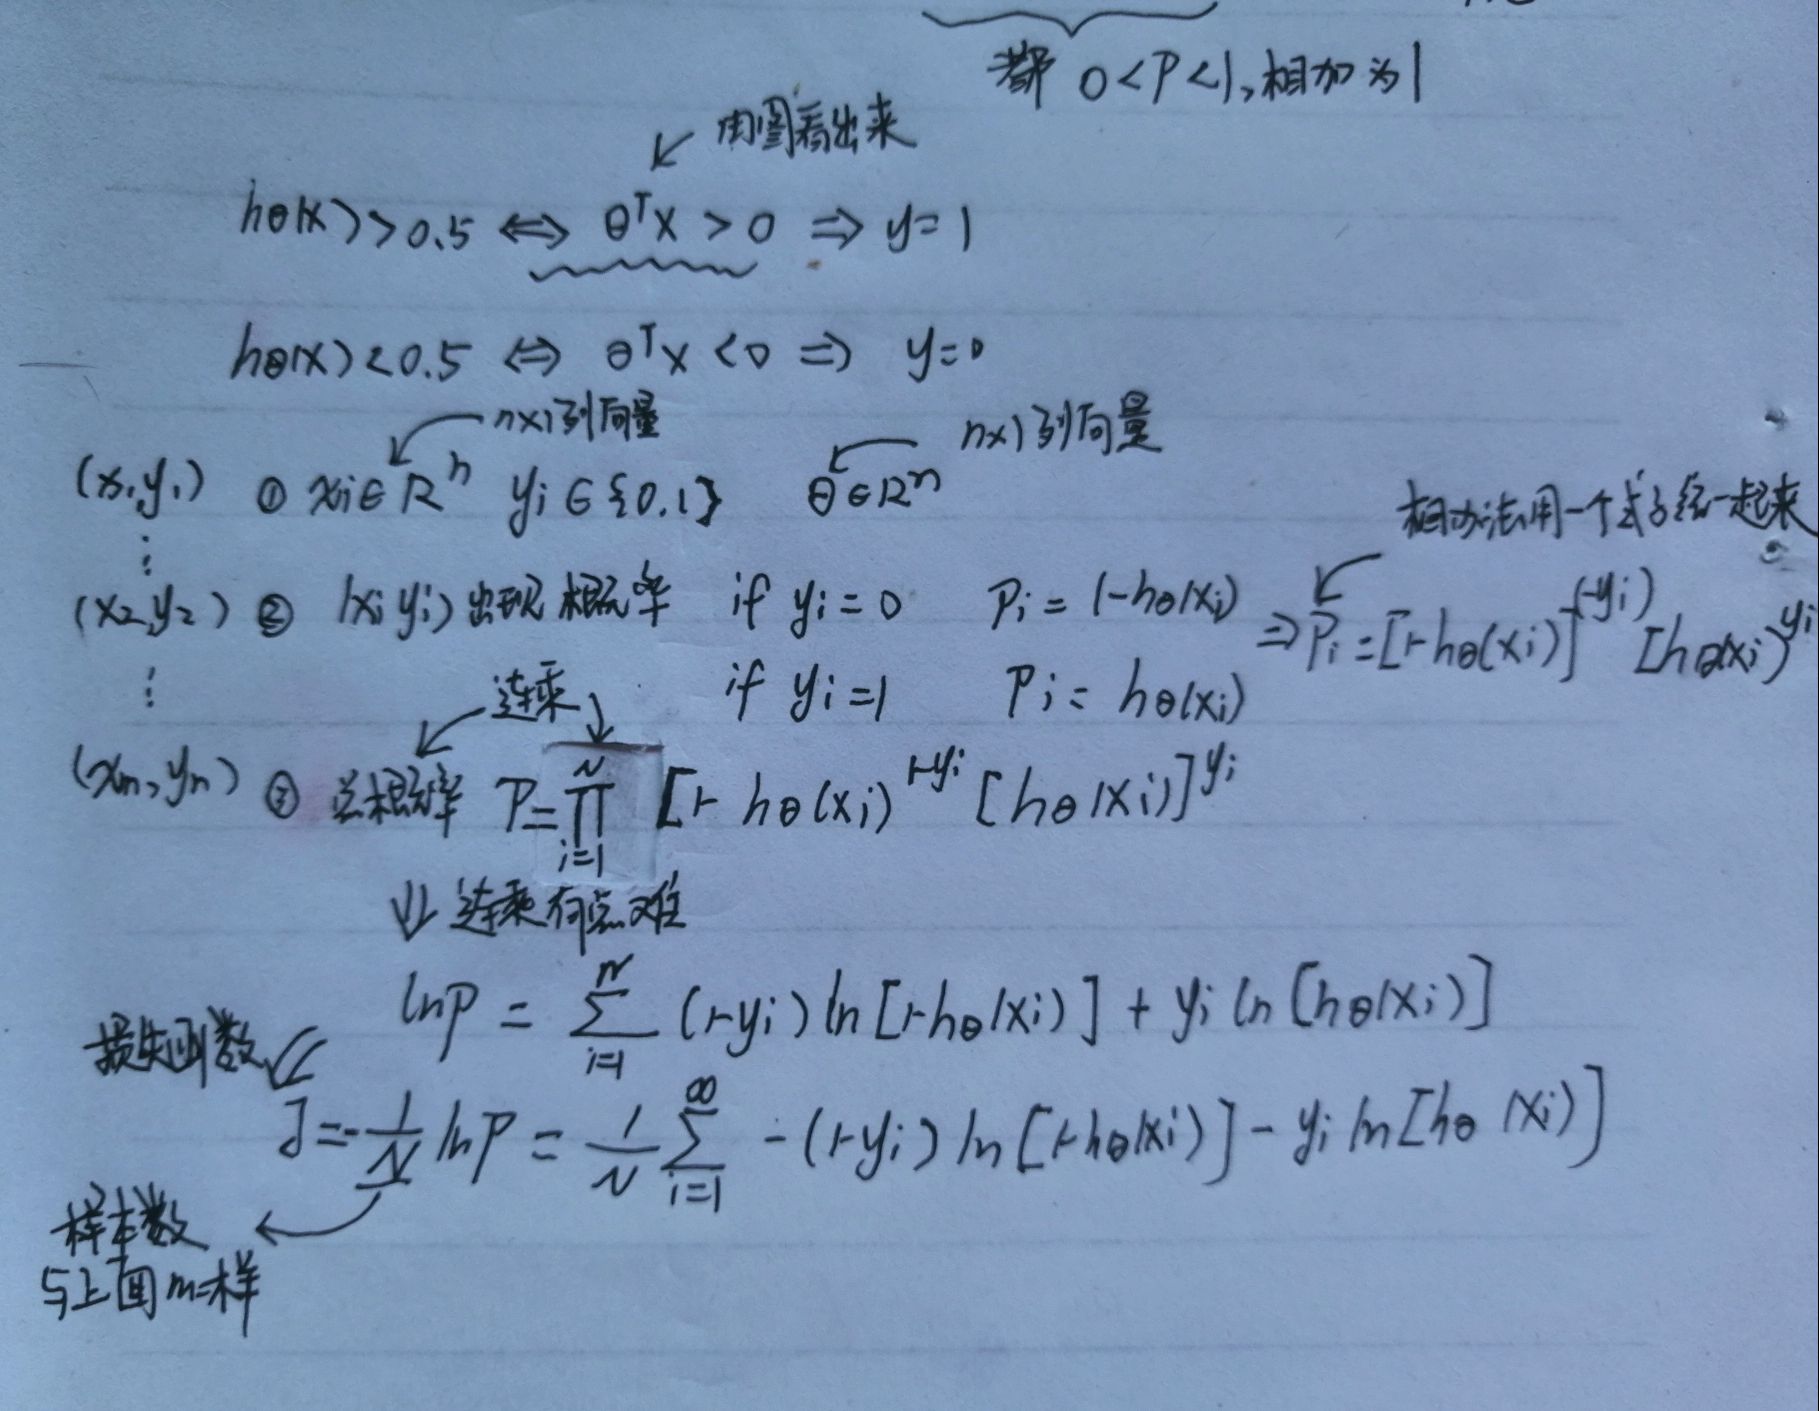 都 0<P<1,相加为1
用图看出来
hθ(x)>0.5 ⇔ θᵀx > 0 ⇒ y=1
hθ(x)<0.5 ⇔ θᵀx <0 ⇒ y=0
n×1列向量 n×1列向量
(x₁,y₁) ① xi∈Rⁿ yi∈{0,1} θ∈Rⁿ
想办法用一个式子统一起来
⋮
(x₂,y₂) ② (xi yi)出现概率 if yi=0 Pi=1-hθ(xi) ⇒ Pi=[1-hθ(xi)]^(1-yi) [hθ(xi)]^yi
⋮ if yi=1 Pi=hθ(xi)
连乘
(xm,ym) ③ 总概率 P=∏_{i=1}^{N} [1-hθ(xi)^{1-yi} [hθ(xi)]^{yi}
⇓ 连乘有点难
lnP = ∑_{i=1}^{N} (1-yi) ln[1-hθ(xi)] + yi ln[hθ(xi)]
损失函数
J=-1/N lnP = 1/N ∑_{i=1}^{∞} -(1-yi) ln[1-hθ(xi)] - yi ln[hθ(xi)]
样本数
与上面m一样